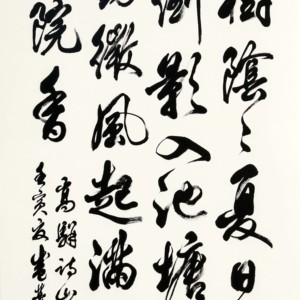 樹陰〻夏日
倒影入池塘
微風起滿
院香
高駢詩山
壬寅夏